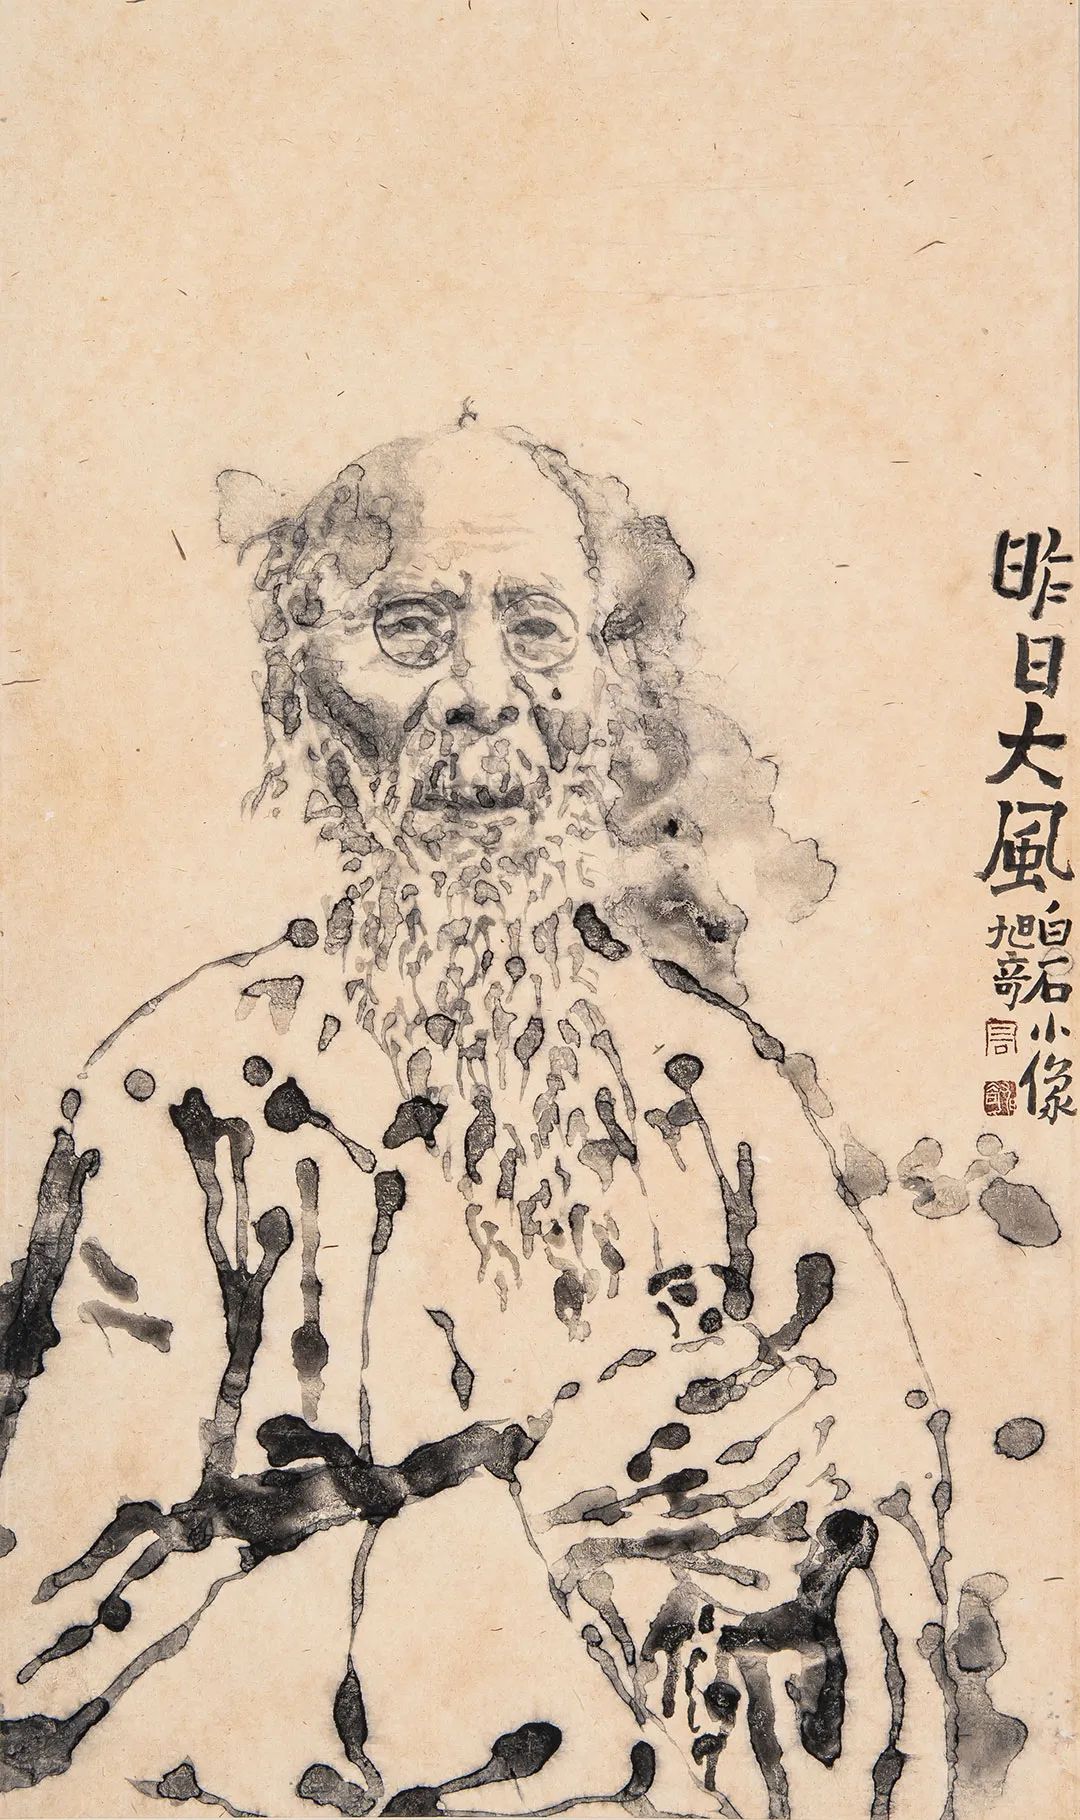 昨日大風
白石小像
旭奇